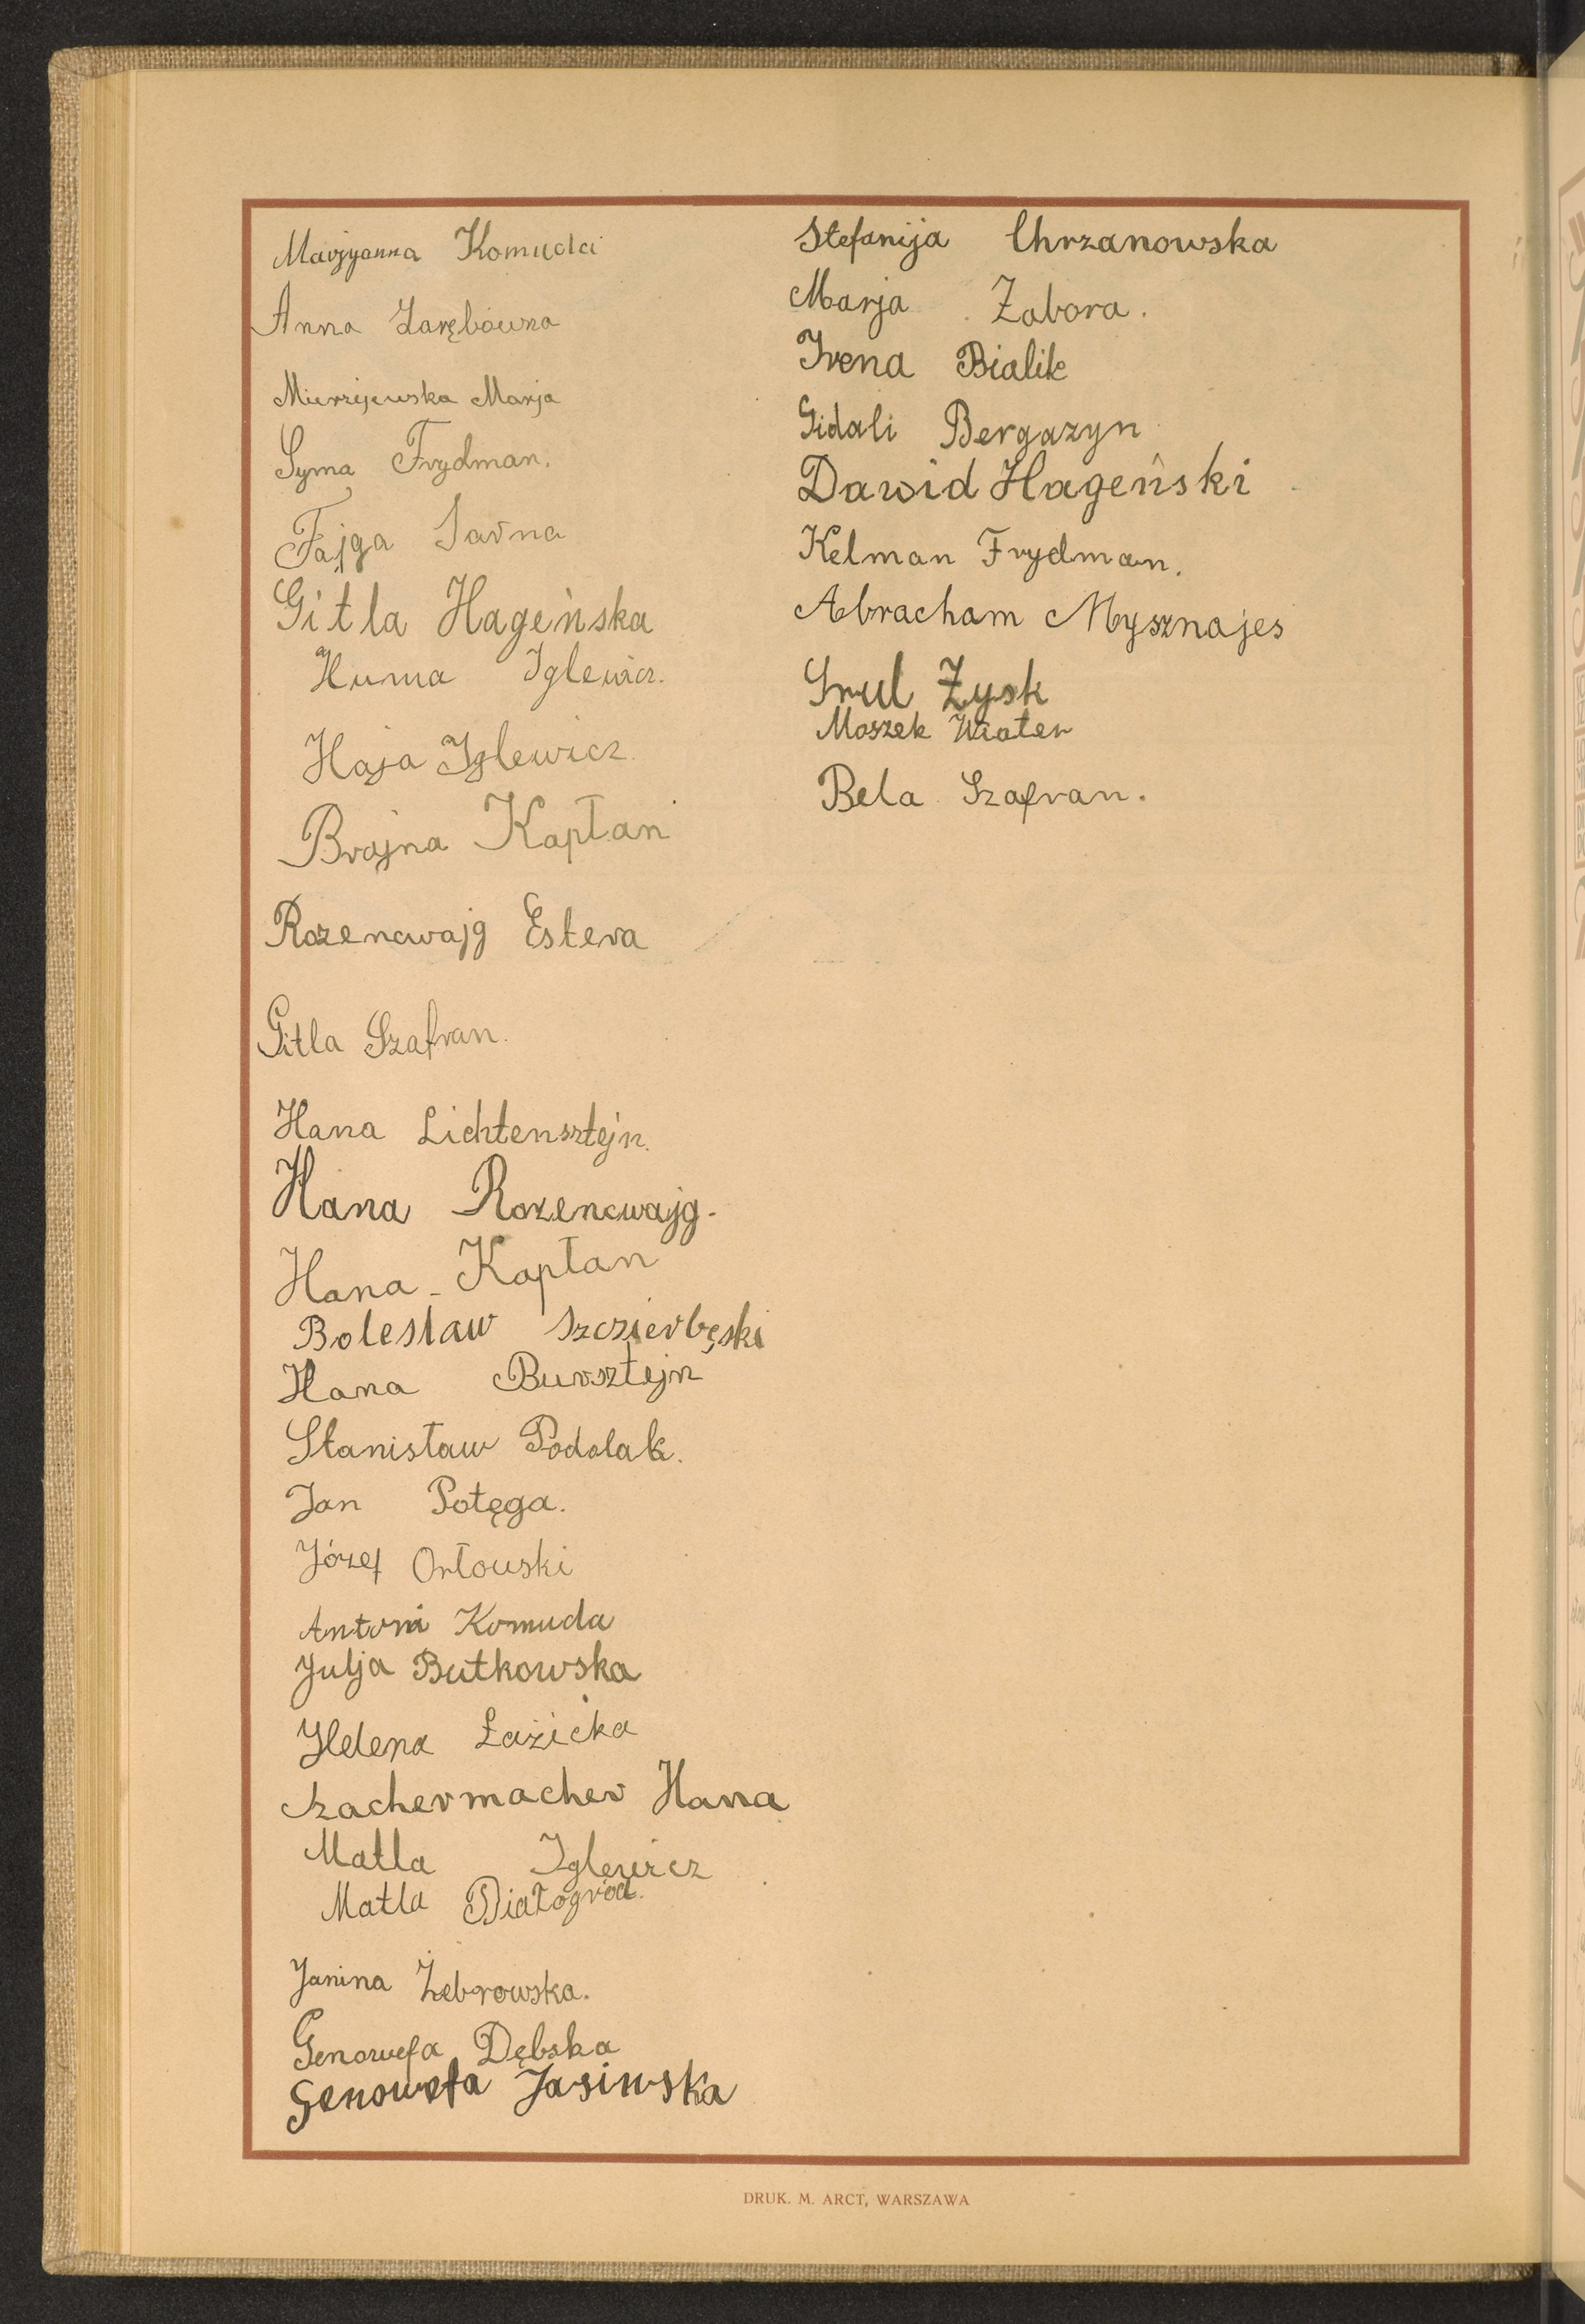 Marjyanna Komuda
Anna Zarębówna
Mierzejewska Marja
Syma Frydman.
Fajga Sarna
Gitla Hageńska
Huma Iglewicz.
Haja Iglewicz.
Brajna Kapłan
Rozencwajg Estera
Gitla Szafran.
Hana Lichtensztejn.
Hana Rozencwajg.
Hana Kapłan
Bolesław Szczierbęski
Hana Bursztejn
Stanisław Podolak.
Jan Potęga.
Józef Orłowski
Antoni Komuda
Julja Butkowska
Helena Łazicka
Szachermacher Hana
Matla Iglewicz
Matla Białogród.
Janina Żebrowska.
Genowefa Dębska
Genowefa Jasinska
Stefanija Chrzanowska
Marja Zabora.
Irena Bialik
Gidali Bergazyn
Dawid Hageński
Kelman Frydman.
Abracham Mysznajes
Srul Zysk
Moszek Wiater
Bela Szafran.
DRUK. M. ARCT, WARSZAWA